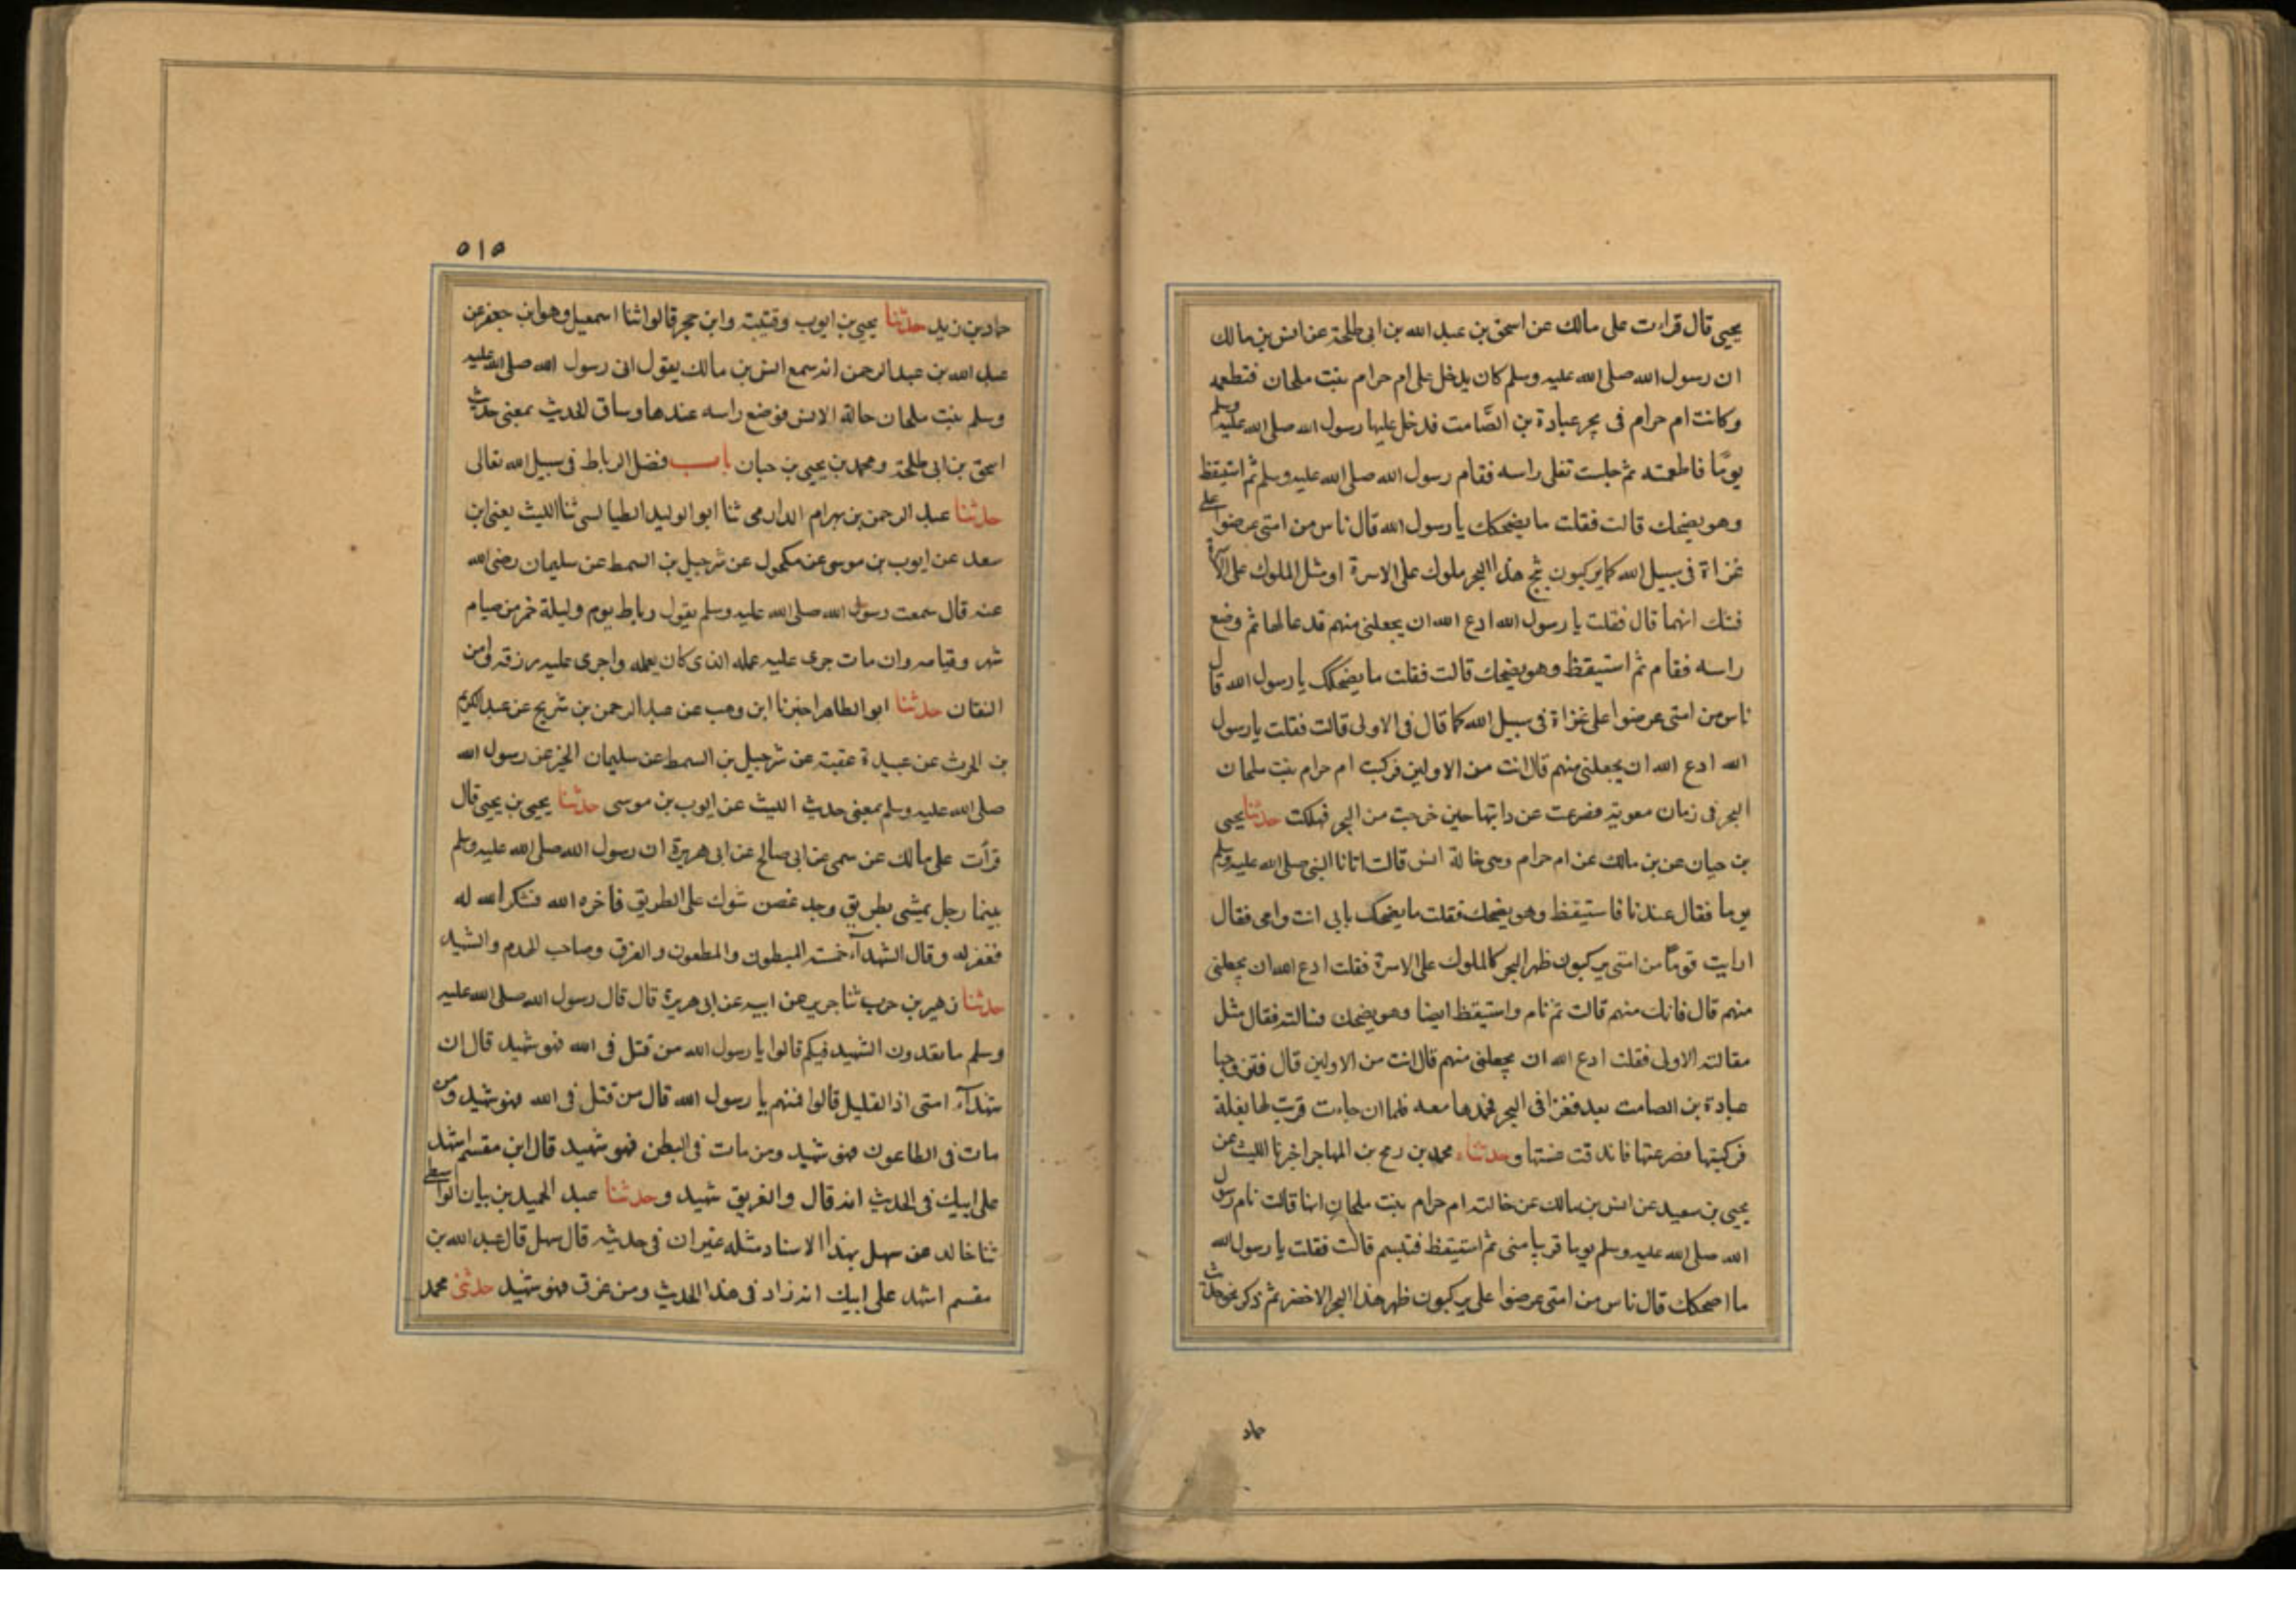 يحيى قال قراءت على مالك عن اسحق بن عبد الله بن ابى طلحة عن انس بن مالك
ان رسول الله صلى الله عليه وسلم كان يدخل على ام حرام بنت ملحان فتطعمه
وكانت ام حرام فى بحر عبادة بن الصّامت فدخل عليها رسول الله صلى الله عليه وسلم
يومًا فاطعمته ثم جلست تفلى راسه فقام رسول الله صلى الله عليه وسلم ثم استيقظ
وهو يضحك قالت فقلت ما يضحكك يا رسول الله قال ناس من امتى عرضوا على
غزاة فى سبيل الله كما يركبون ثبج هذا البحر ملوك على الاسرة او مثل الملوك على الاسرة
فتك انهما قال فقلت يا رسول الله ادع الله ان يجعلنى منهم فدعا لها ثم وضع
راسه فقام ثم استيقظ وهو يضحك قالت فقلت ما يضحكك يا رسول الله قال
ناس من امتى عرضوا على غزاة فى سبيل الله كما قال فى الاولى قالت فقلت يا رسول
الله ادع الله ان يجعلنى منهم قال انت من الاولين فركبت ام حرام بنت ملحان
البحر فى زمان معوية فصرعت عن دابتها حين خرجت من البحر فهلكت حدثنا يحيى
بن حبان عن بن مالك عن ام حرام وهى خالة انس قالت اتانا النبى صلى الله عليه وسلم
يوما فقال عندنا فاستيقظ وهو يضحك فقلت ما يضحكك بابى انت وامى فقال
ارايت قومًا من امتى يركبون ظهر البحر كالملوك على الاسرة فقلت ادع الله ان يجعلنى
منهم قال فانك منهم قالت ثم نام واستيقظ ايضا وهو يضحك فسالته فقال مثل
مقالته الاولى فقلت ادع الله ان يجعلنى منهم قال انت من الاولين قال فتزوجها
عبادة بن الصامت بعد فغزا فى البحر فحمدها معه فلما ان جاءت قربت لها بغلة
فركبتها فصرعتها فاندقت عنقها وحدثناء محمد بن رمح بن المهاجر اخبرنا الليث عن
يحيى بن سعيد عن انس بن مالك عن خالته ام حرام بنت ملحان انها قالت نام رسول
الله صلى الله عليه وسلم يوما قريبا منى ثم استيقظ فتبسم قالت فقلت يا رسول الله
ما اضحكك قال ناس من امتى عرضوا على يركبون ظهر هذا البحر الاخضر ثم ذكر نحو حديث
حماد
٥١٥
حماد بن زيد حدثنا يحيى بن ايوب وقتيبة وابن حجر قالوا ثنا اسمعيل وهو ابن جعفر عن
عبد الله بن عبد الرحمن انه سمع انس بن مالك يقول اتى رسول الله صلى الله عليه
وسلم بنت ملحان خالة الانس فوضع راسه عندها وساق الحديث بمعنى حديث
اسحق بن ابى طلحة ومحمد بن يحيى بن حبان باب فضل الرباط فى سبيل الله تعالى
حدثنا عبد الرحمن بن بهرام الدارمى ثنا ابو الوليد الطيالسى ثنا الليث يعنى ابن
سعد عن ايوب بن موسى عن مكحول عن شرحبيل بن السمط عن سليمان رضى الله
عنه قال سمعت رسول الله صلى الله عليه وسلم يقول رباط يوم وليلة خير من صيام
شهر وقيامه وان مات جرى عليه عمله الذى كان يعمله واجرى عليه رزقه وامن
الفتان حدثنا ابو الطاهر اخبرنا ابن وهب عن عبد الرحمن بن شريح عن عبد الكريم
بن الحرث عن عبيدة عقبة عن شرحبيل بن السمط عن سليمان الخير عن رسول الله
صلى الله عليه وسلم بمعنى حديث الليث عن ايوب بن موسى حدثنا يحيى بن يحيى قال
قرأت على مالك عن سمى عن ابى صالح عن ابى هريرة ان رسول الله صلى الله عليه وسلم
بينما رجل يمشى بطريق وجد غصن شوك على الطريق فاخره الله فشكر الله له
فغفر له وقال الشهدآء خمسة المبطون والمطعون والغرق وصاحب الهدم والشهيد
حدثنا زهير بن حرب ثنا جرير عن ابيه عن ابى هريرة قال قال رسول الله صلى الله عليه
وسلم ما تعدون الشهيد فيكم قالوا يا رسول الله من قتل فى الله فهو شهيد قال ان
شهدآء امتى اذا لقليل قالوا فمنهم يا رسول الله قال من قتل فى الله فهو شهيد ومن
مات فى الطاعون فهو شهيد ومن مات فى البطن فهو شهيد قال ابن مقسم اشهد
على ابيك فى الحديث انه قال والغريق شهيد وحدثنا عبد الحميد بن بيان الواسطى
ثنا خالد عن سهل بهذا الاسناد مثله غير ان فى حديثه قال سهل قال عبد الله بن
مقسم اشهد على ابيك انه زاد فى هذا الحديث ومن غرق فهو شهيد حدثنى محمد